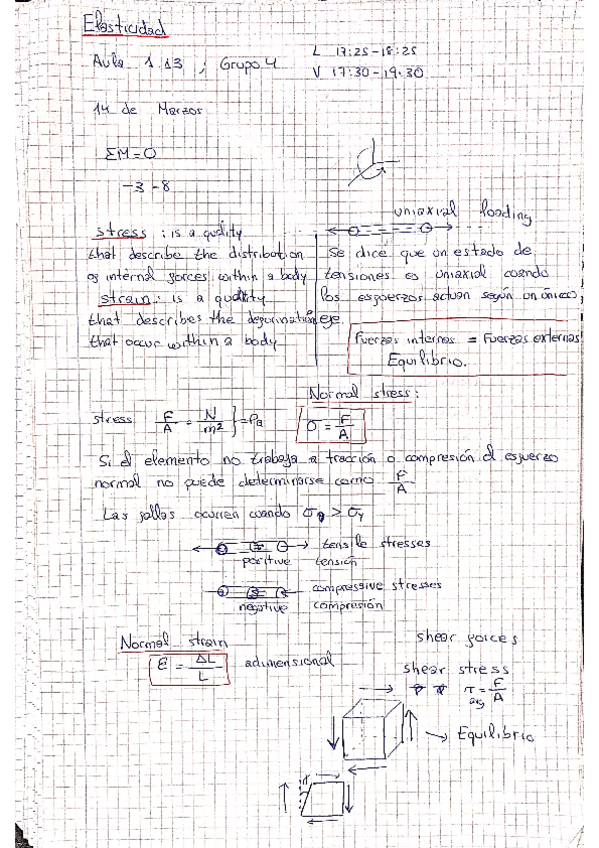 Elasticidad
Aula 1.13 , Grupo 4
L 17:25-18:25
V 17:30-19:30
14 de Marzos
ΣM=0
-3-8
stress : is a quality
that describe the distribution
of internal forces within a body
strain : is a quality
that describes the deformation
that occur within a body
uniaxial loading
Se dice que un estado de
tensiones es uniaxial cuando
los esfuerzos actuan según un único
eje.
Fuerzas internos = Fuerzas externas
Equilibrio.
Normal stress:
stress F/A = N/m² } = Pa
σ = F/A
Si el elemento no trabaja a tracción o compresión el esfuerzo
normal no puede determinarse como F/A
Las fallas ocurren cuando σ > σy
tensile stresses
positive tensión
compressive stresses
negative compresión
Normal strain
ε = ΔL/L adimensional
shear forces
shear stress
τ avg = F/A
Equilibrio